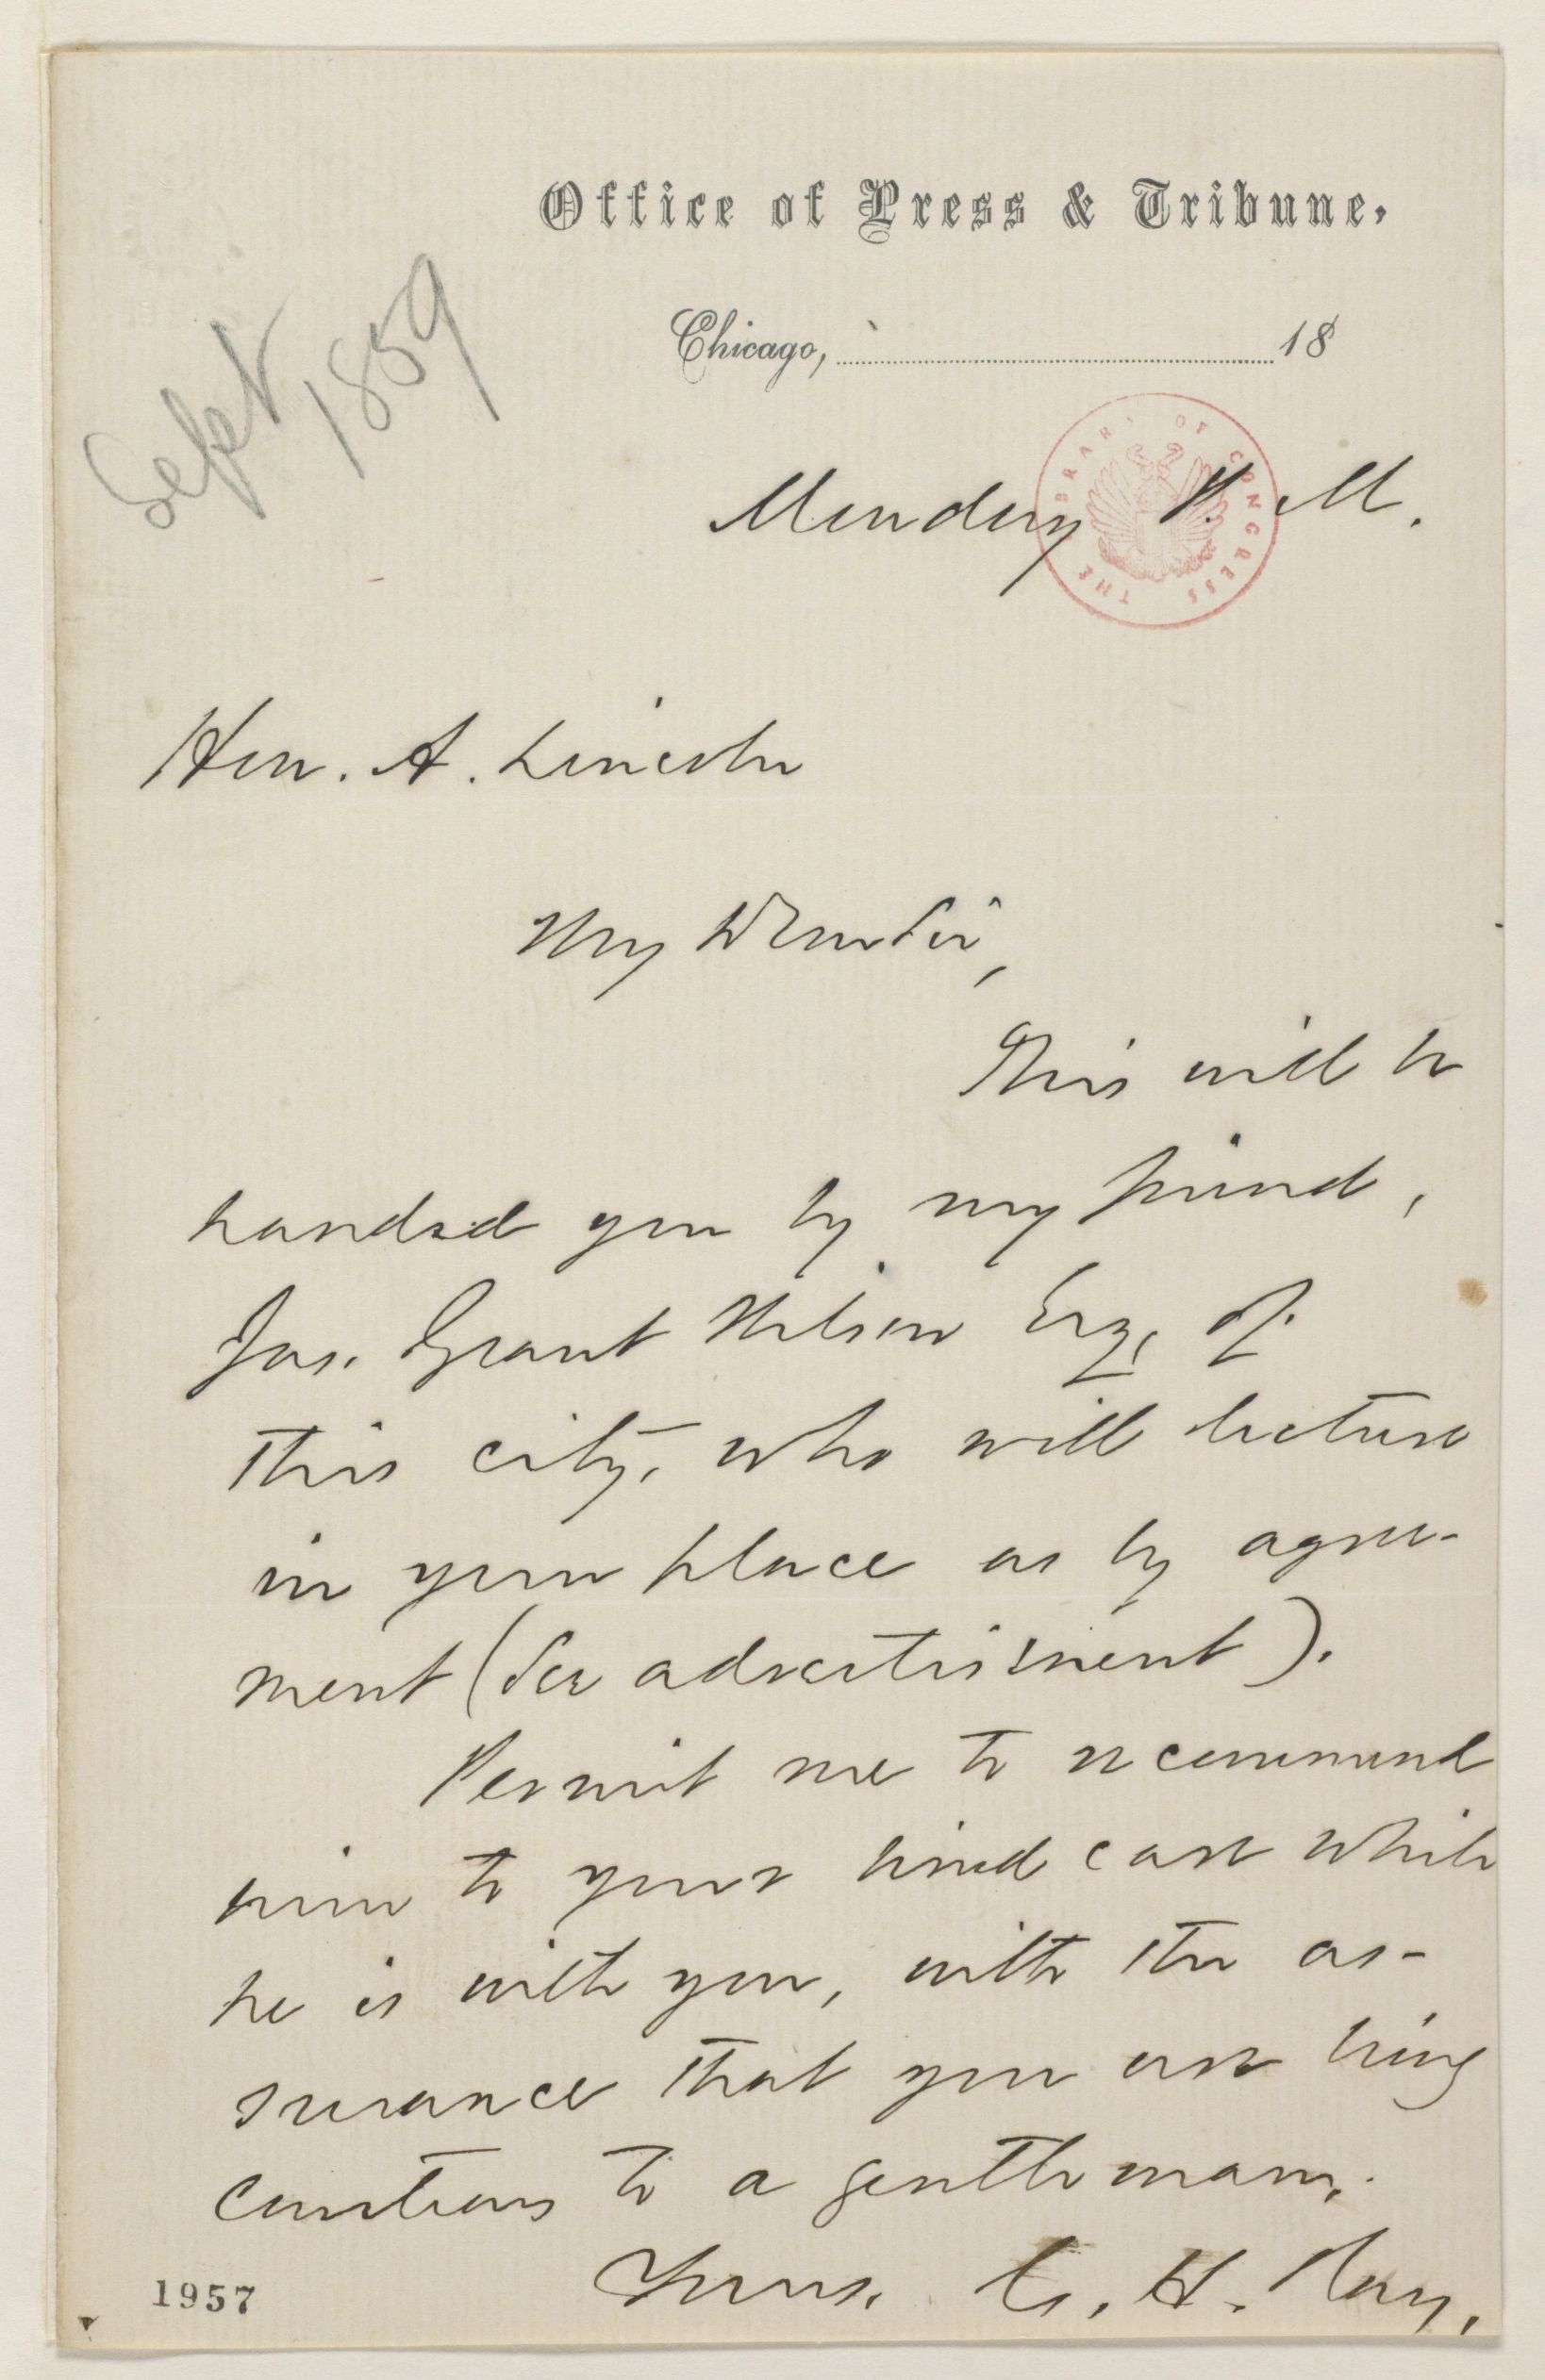 Office of Press & Tribune,
Chicago, 18
Sept
1859
THE LIBRARY OF CONGRESS
Monday P. M.
Hon. A. Lincoln
My Dear Sir,
This will be
handed you by my friend,
Jas. Grant Wilson Esq, of
this city, who will lecture
in your place as by agree-
ment (See advertisment).
Permit me to recommend
him to your kind care while
he is with you, with the as-
surance that you are being
courteous to a gentleman.
Yours. C. H. Ray.
1957